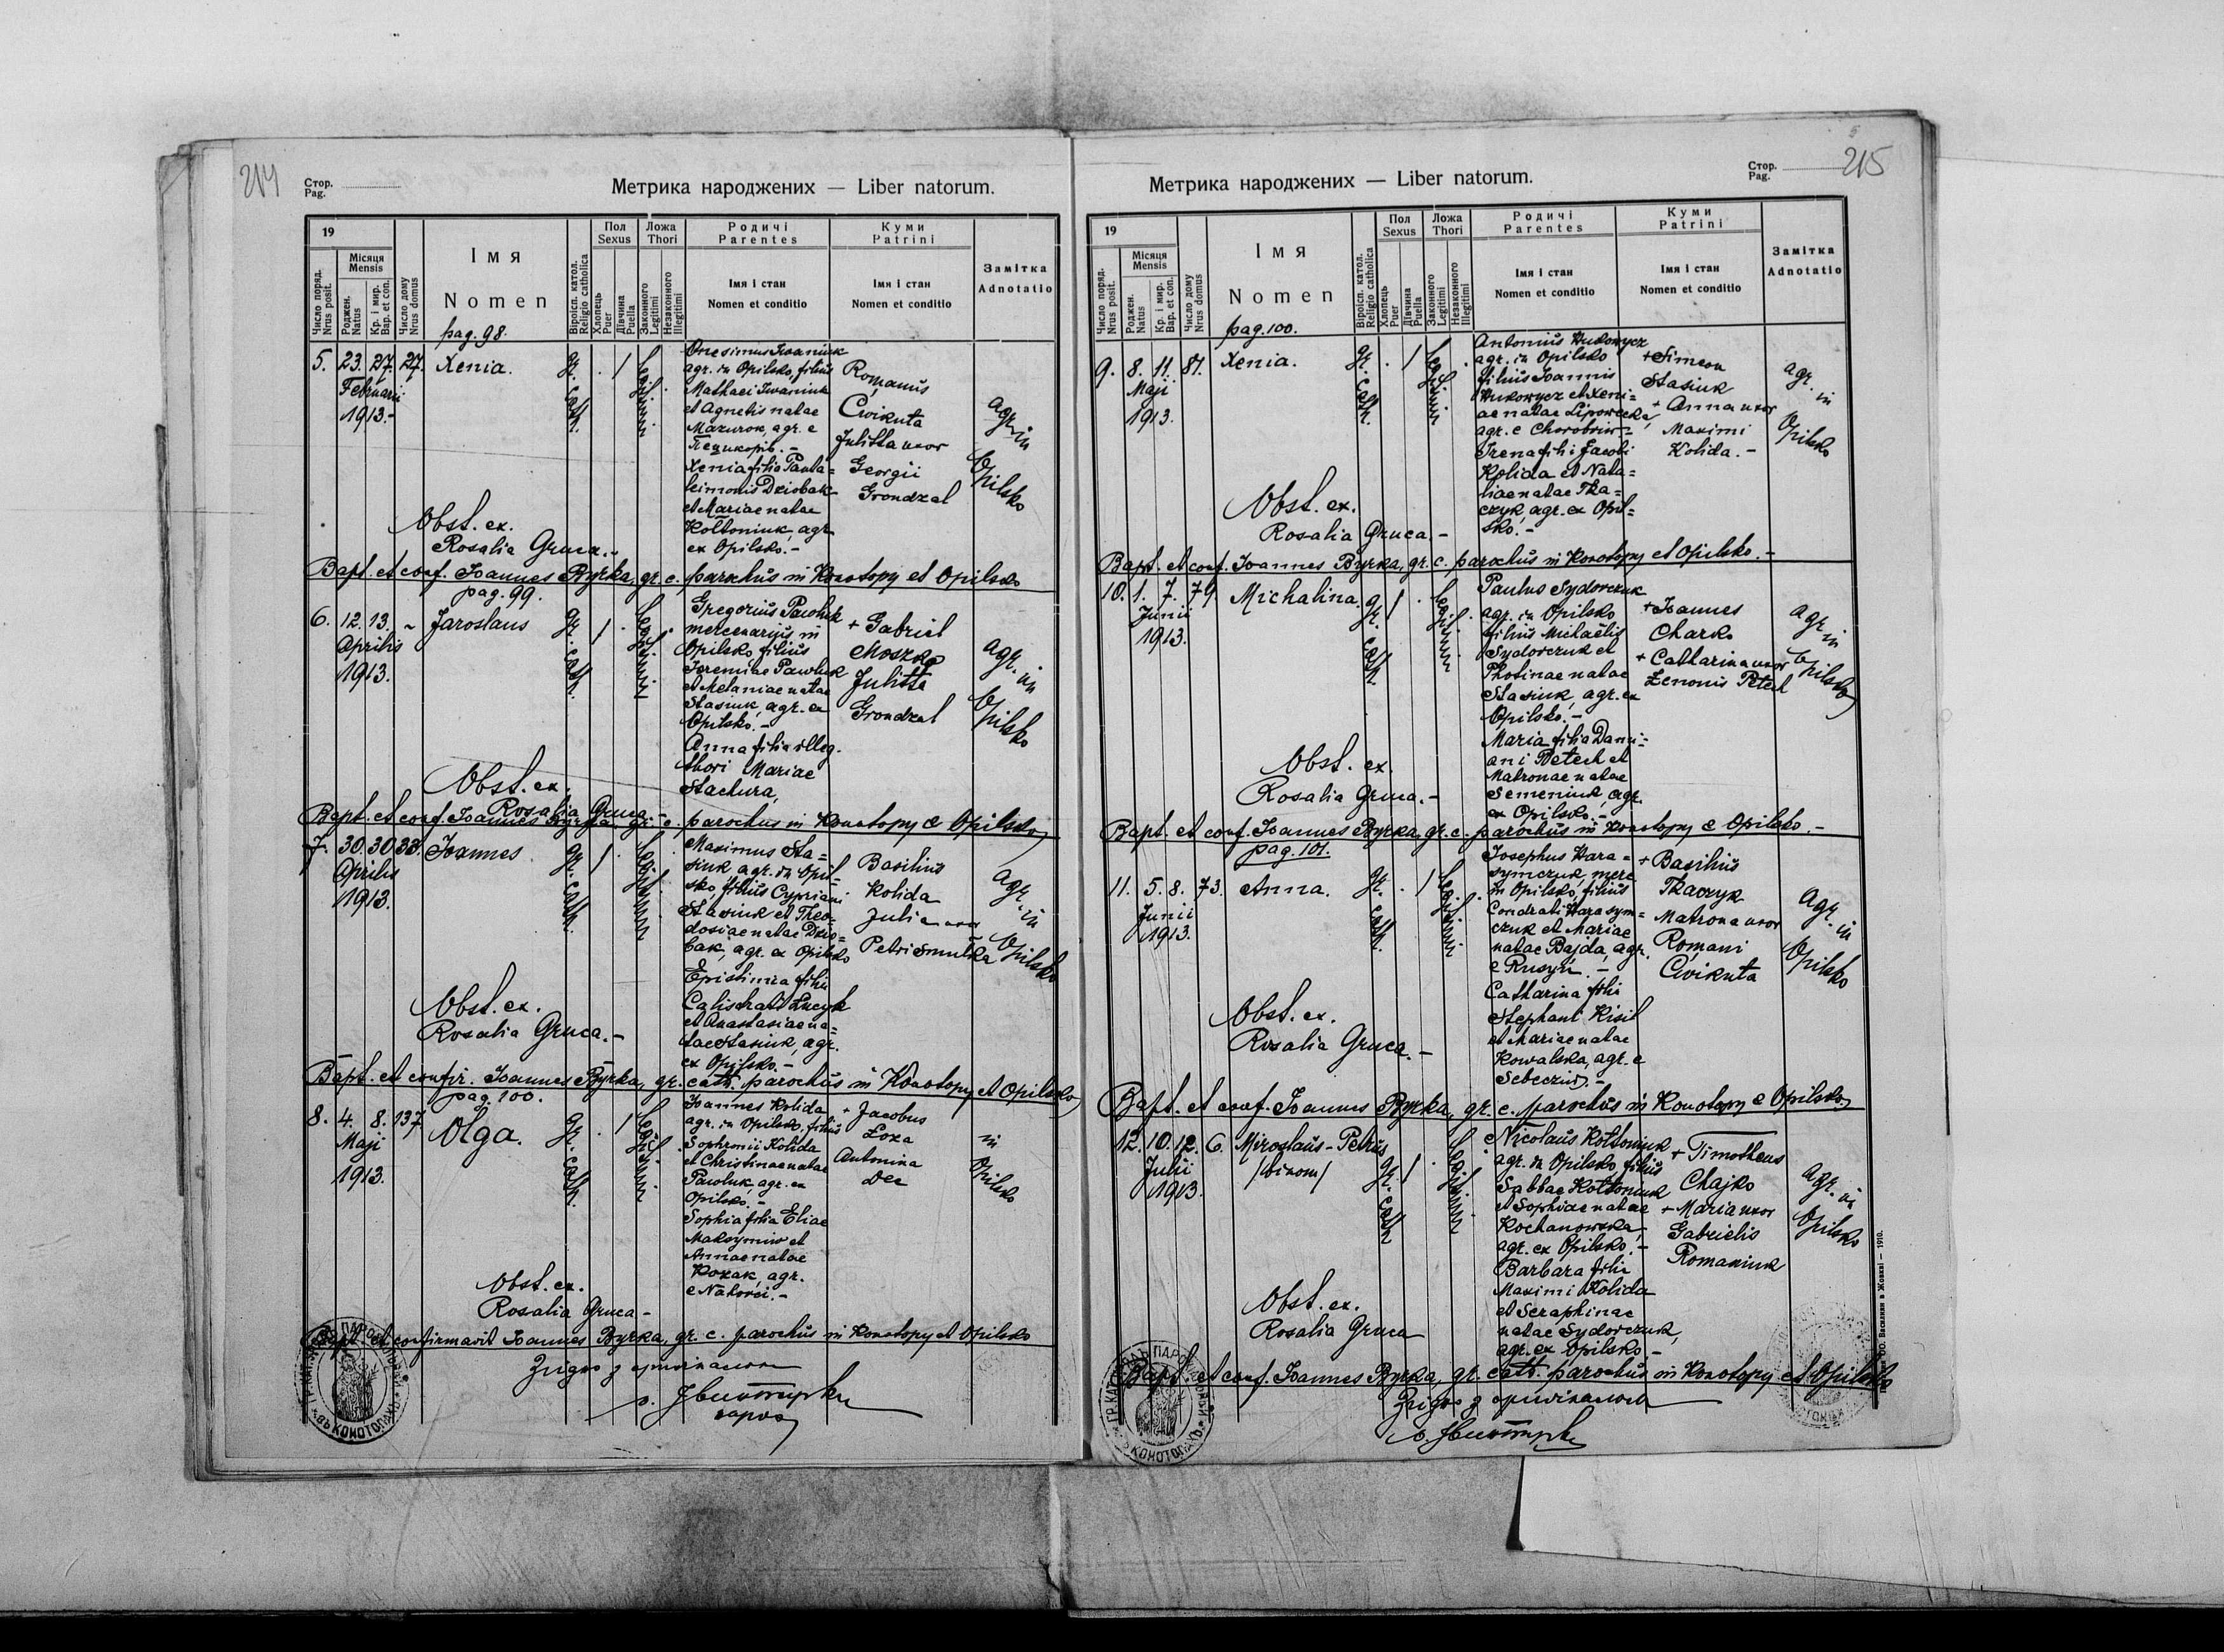 214
Стор.
Pag.
Метрика народжених — Liber natorum.
19
Місяця
Mensis
Число поряд.
Nrus posit.
Роджен.
Natus
Кр. і мир.
Bap. et con.
Число дому
Nrus domus
Імя
Nomen
pag. 98.
Віроісп. катол.
Religio catholica
Пол
Sexus
Хлопець
Puer
Дівчина
Puella
Ложа
Thori
Законного
Legitimi
Незаконного
Illegitimi
Родичі
Parentes
Імя і стан
Nomen et conditio
Куми
Patrini
Імя і стан
Nomen et conditio
Замітка
Adnotatio
5. 23. 27. 27. Xenia. gr. cath. . 1 Legitimi .
Februarii
1913.-
Onesimus Iwaniuk
agr. in Opilsko, filius
Mathaei Iwaniuk
et Agnetis natae
Mazurok, agr. e
Пецикорів.-
Xenia filia Panta=
leimonis Dziobak
et Mariae natae
Kołtoniuk, agr.
ex Opilsko.-
Romanus
Cwikuta
Julitta uxor
Georgii
Grondzal
agr. in
Opilsko
Obst. ex.
Rosalia Gruca.-
Bapt. et conf. Joannes Byrka, gr. c. parochus in Konotopy et Opilsko
pag. 99.
6. 12. 13. ~ Jaroslaus gr. cath. 1 . Legitimi .
Aprilis
1913.
Gregorius Pawluk
mercenarius in
Opilsko filius
Jeremiae Pawluk
et Melaniae natae
Stasiuk, agr. ex
Opilsko.-
Anna filia illeg.
thori Mariae
Stachura,
+ Gabriel
Moszko
Julitta
Grondzal
agr. in
Opilsko
Obst. ex.
Rosalia Gruca.-
Bapt. et conf. Joannes Byrka, gr. c. parochus in Konotopy e Opilsko
7. 30. 30. 38. Joannes. gr. cath. 1 . Legitimi
Aprilis
1913.
Maximus Sta=
siuk agr. in Opil=
sko, filius Cypriani
Stasiuk et Theo=
dosiae natae Dzio=
bak, agr. ex Opilsko
Epistimia filia
Calistrati Łucyk
et Anastasiae na=
tae Stasiuk, agr.
ex Opilsko.-
Basilius
Kolida
Julia uxor
Petri Smutka
agr. in
Opilsko
Obst. ex.
Rosalia Gruca.-
Bapt. et confir. Joannes Byrka, gr. cath. parochus in Konotopy et Opilsko
pag. 100.
8. 4. 8. 137 Olga. gr. cath. . 1 Legitimi .
Maji
1913.
Joannes Kolida
agr. in Opilsko, filius
Sophronii Kolida
et Christinae natae
Pawluk, agr. ex
Opilsko.-
Sophia filia Eliae
Maksymiw et
Annae natae
Kozak, agr.
e Nahorci.-
+ Jacobus
Loza
Antonina
Dec
in
Opilsko
Obst. ex.
Rosalia Gruca-
Bapt. et confirmavit Joannes Byrka, gr. c. parochus in Konotopy et Opilsko
Згідно з оригіналом
215
Стор.
Pag.
Метрика народжених — Liber natorum.
19
Місяця
Mensis
Число поряд.
Nrus posit.
Роджен.
Natus
Кр. і мир.
Bap. et con.
Число дому
Nrus domus
Імя
Nomen
pag. 100.
Віроісп. катол.
Religio catholica
Пол
Sexus
Хлопець
Puer
Дівчина
Puella
Ложа
Thori
Законного
Legitimi
Незаконного
Illegitimi
Родичі
Parentes
Імя і стан
Nomen et conditio
Куми
Patrini
Імя і стан
Nomen et conditio
Замітка
Adnotatio
9. 8. 11. 81. Xenia. gr. cath. . 1 Legitimi .
Maji
1913.
Antonius Hukowycz
agr. in Opilsko
filius Joannis
Hukowycz et Xeni=
ae natae Lipowecka,
agr. e Chorobrów.-
Irena filii Jacobi
Kolida et Nata=
liae natae Tka=
czyk, agr. ex Opil=
sko.-
+ Simeon
Stasiuk
+ Anna uxor
Maximi
Kolida.-
agr. in
Opilsko
Obst. ex.
Rosalia Gruca.-
Bapt. et conf. Joannes Byrka, gr. c. parochus in Konotopy et Opilsko.-
10. 1. 7. 79 Michalina. gr. cath. 1 . Legitimi .
Junii
1913.
Paulus Sydorczuk
agr. in Opilsko
filius Michaëlis
Sydorczuk et
Photinae natae
Stasiuk, agr. ex
Opilsko.-
Maria filia Dami=
ani Petech et
Matronae natae
Semeniuk, agr.
ex Opilsko.-
+ Joannes
Charko
+ Catharina uxor
Zenonis Petech
agr. in
Opilsko
Obst. ex.
Rosalia Gruca.-
Bapt. et conf. Joannes Byrka, gr. c. parochus in Konotopy e Opilsko.-
pag. 101.
11. 5. 8. 73. Anna. gr. cath. . 1 Legitimi .
Junii
1913.
Josephus Hara=
symczuk, merc.
in Opilsko, filius
Condrati Harasym=
czuk et Mariae
natae Bajda, agr.
e Rusyn.-
Catharina filii
Stephani Kisil
et Mariae natae
Kowalska, agr. e
Sebeczów.-
+ Basilius
Tkaczyk
Matrona uxor
Romani
Cwikuta
agr. in
Opilsko
Obst. ex.
Rosalia Gruca.-
Bapt. et conf. Joannes Byrka, gr. c. parochus in Konotopy e Opilsko
12. 10. 12. 6. Miroslaus-Petrus gr. cath. 1 . Legitimi
Julii
1913.
/binom/
Nicolaus Kołtoniuk
agr. in Opilsko, filius
Sabbae Kołtoniuk
et Sophiae natae
Kochanowska,
agr. ex Opilsko.-
Barbara filii
Maximi Kolida
et Seraphinae
natae Sydorczuk,
agr. ex Opilsko-
+ Timotheus
Chajko
+ Maria uxor
Gabrielis
Romaniuk
agr. in
Opilsko
Obst. ex.
Rosalia Gruca
Bapt. et conf. Joannes Byrka, gr. cath. parochus in Konotopy et Opilsko
Згідно з оригіналом